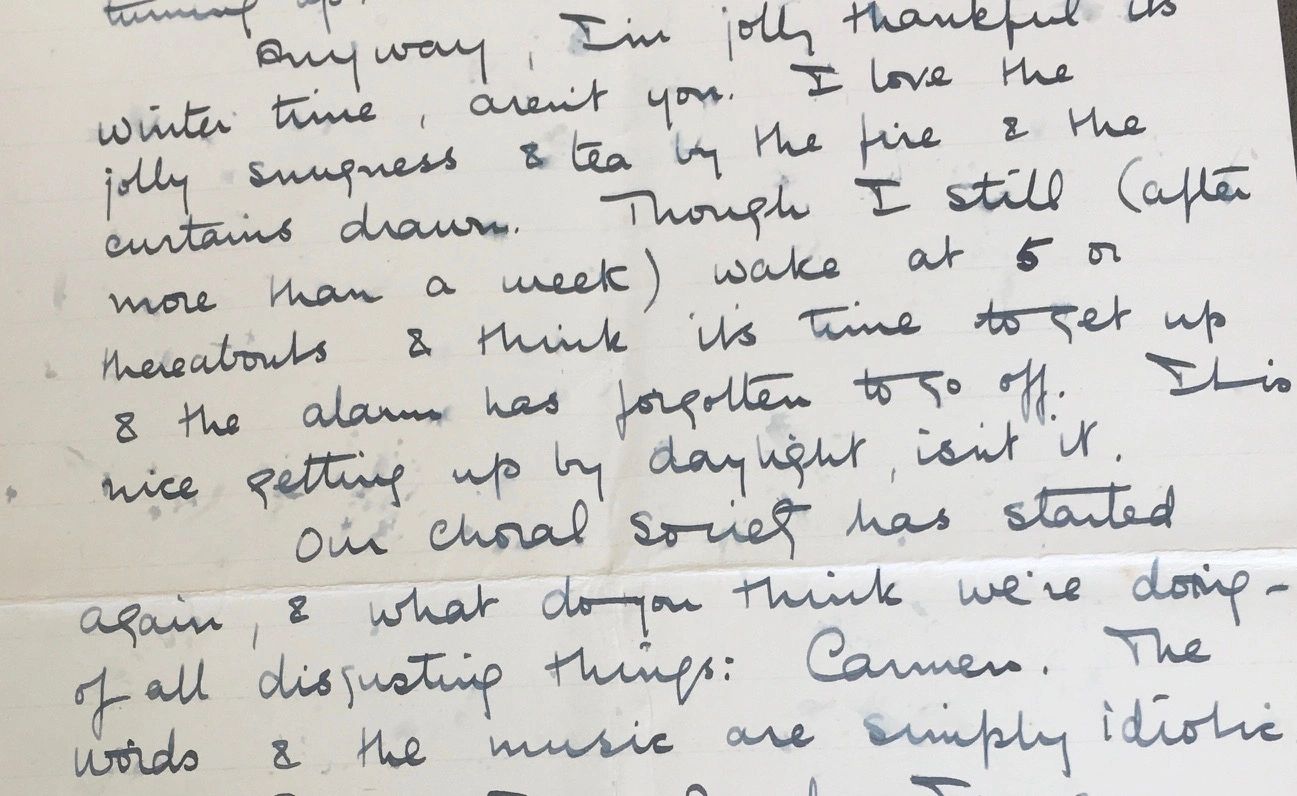 turning up.
Anyway, I'm jolly thankful its
winter time, aren't you. I love the
jolly snugness & tea by the fire & the
curtains drawn. Though I still (after
more than a week) wake at 5 or
thereabouts & think it's time to get up
& the alarm has forgotten to go off. It is
nice getting up by daylight, isn't it.
Our Choral Society has started
again, & what do you think we're doing -
of all disgusting things: Carmen. The
words & the music are simply idiotic